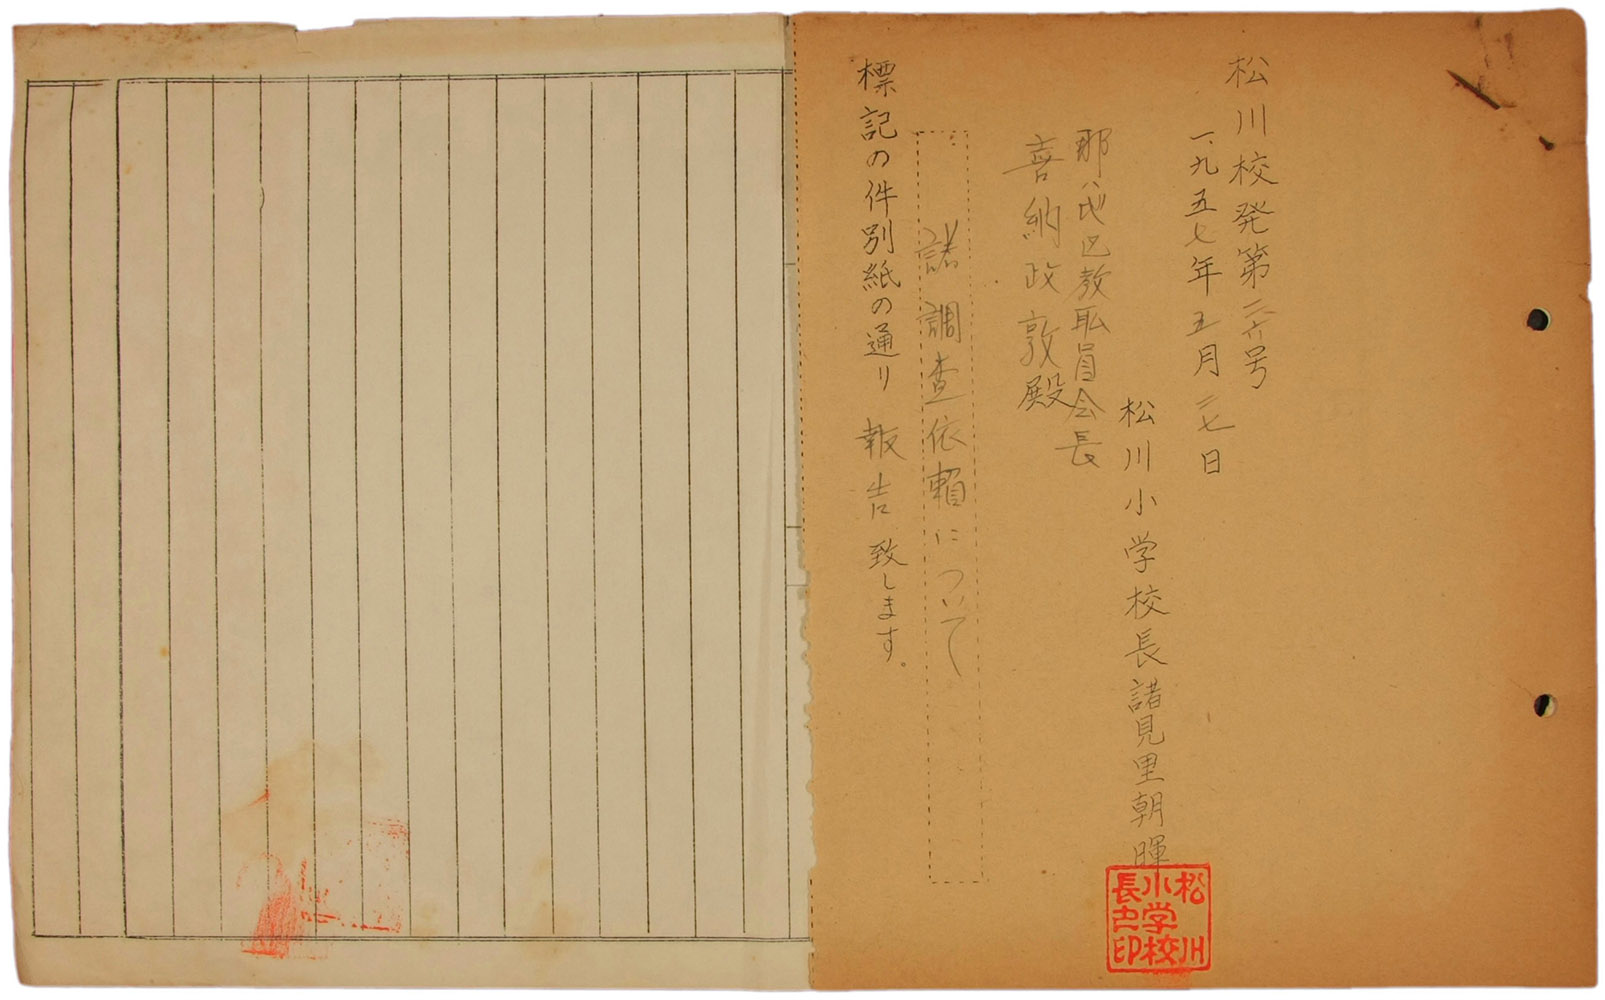 松川校発第二六号
一九五七年五月二七日
松川小学校長諸見里朝暉
那ハ地区教職員会長
喜納政敦殿
諸調査依頼について
標記の件別紙の通り報告致します。
松川小学校長之印